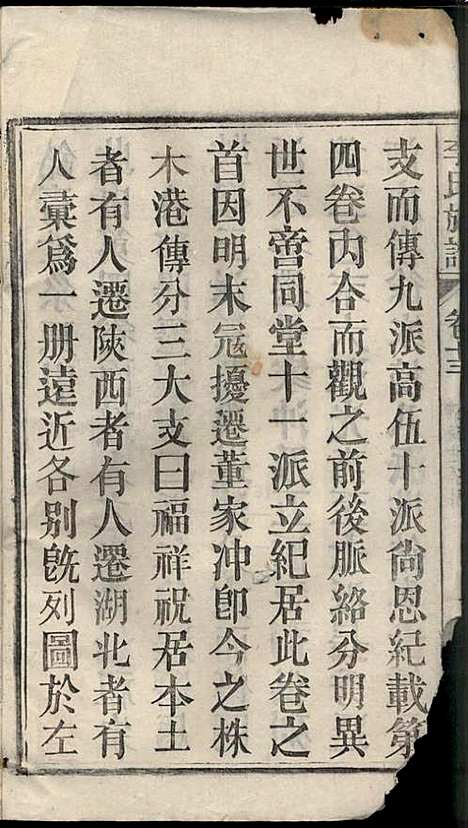 李氏族譜 卷十三
支而傳九派高伍十派尙恩紀載第
四卷內合而觀之前後脈絡分明異
世不啻同堂十一派立紀居此卷之
首因明末冦擾遷董家冲卽今之株
木港傳分三大支曰福祥祝居本土
者有人遷陝西者有人遷湖北者有
人彙爲一册遠近各別旣列圖於左